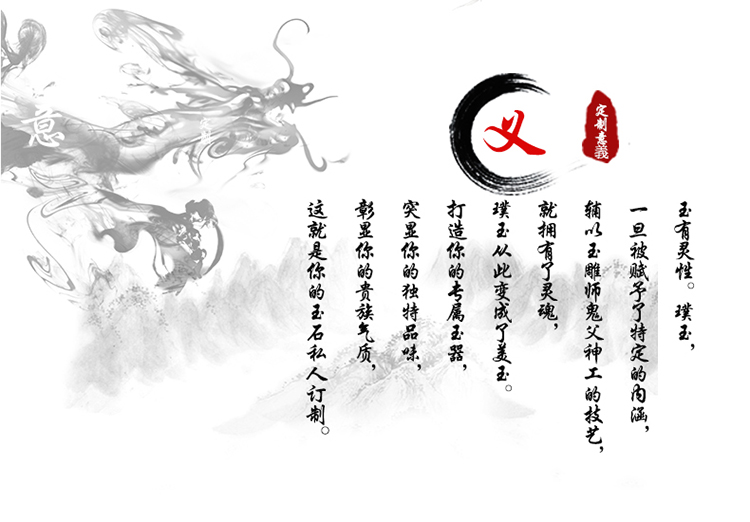 意
义
定制意義
玉有灵性。璞玉，
一旦被赋予了特定的内涵，
辅以玉雕师鬼父神工的技艺，
就拥有了灵魂，
璞玉从此变成了美玉。
打造你的专属玉器，
突显你的独特品味，
彰显你的贵族气质，
这就是你的玉石私人订制。